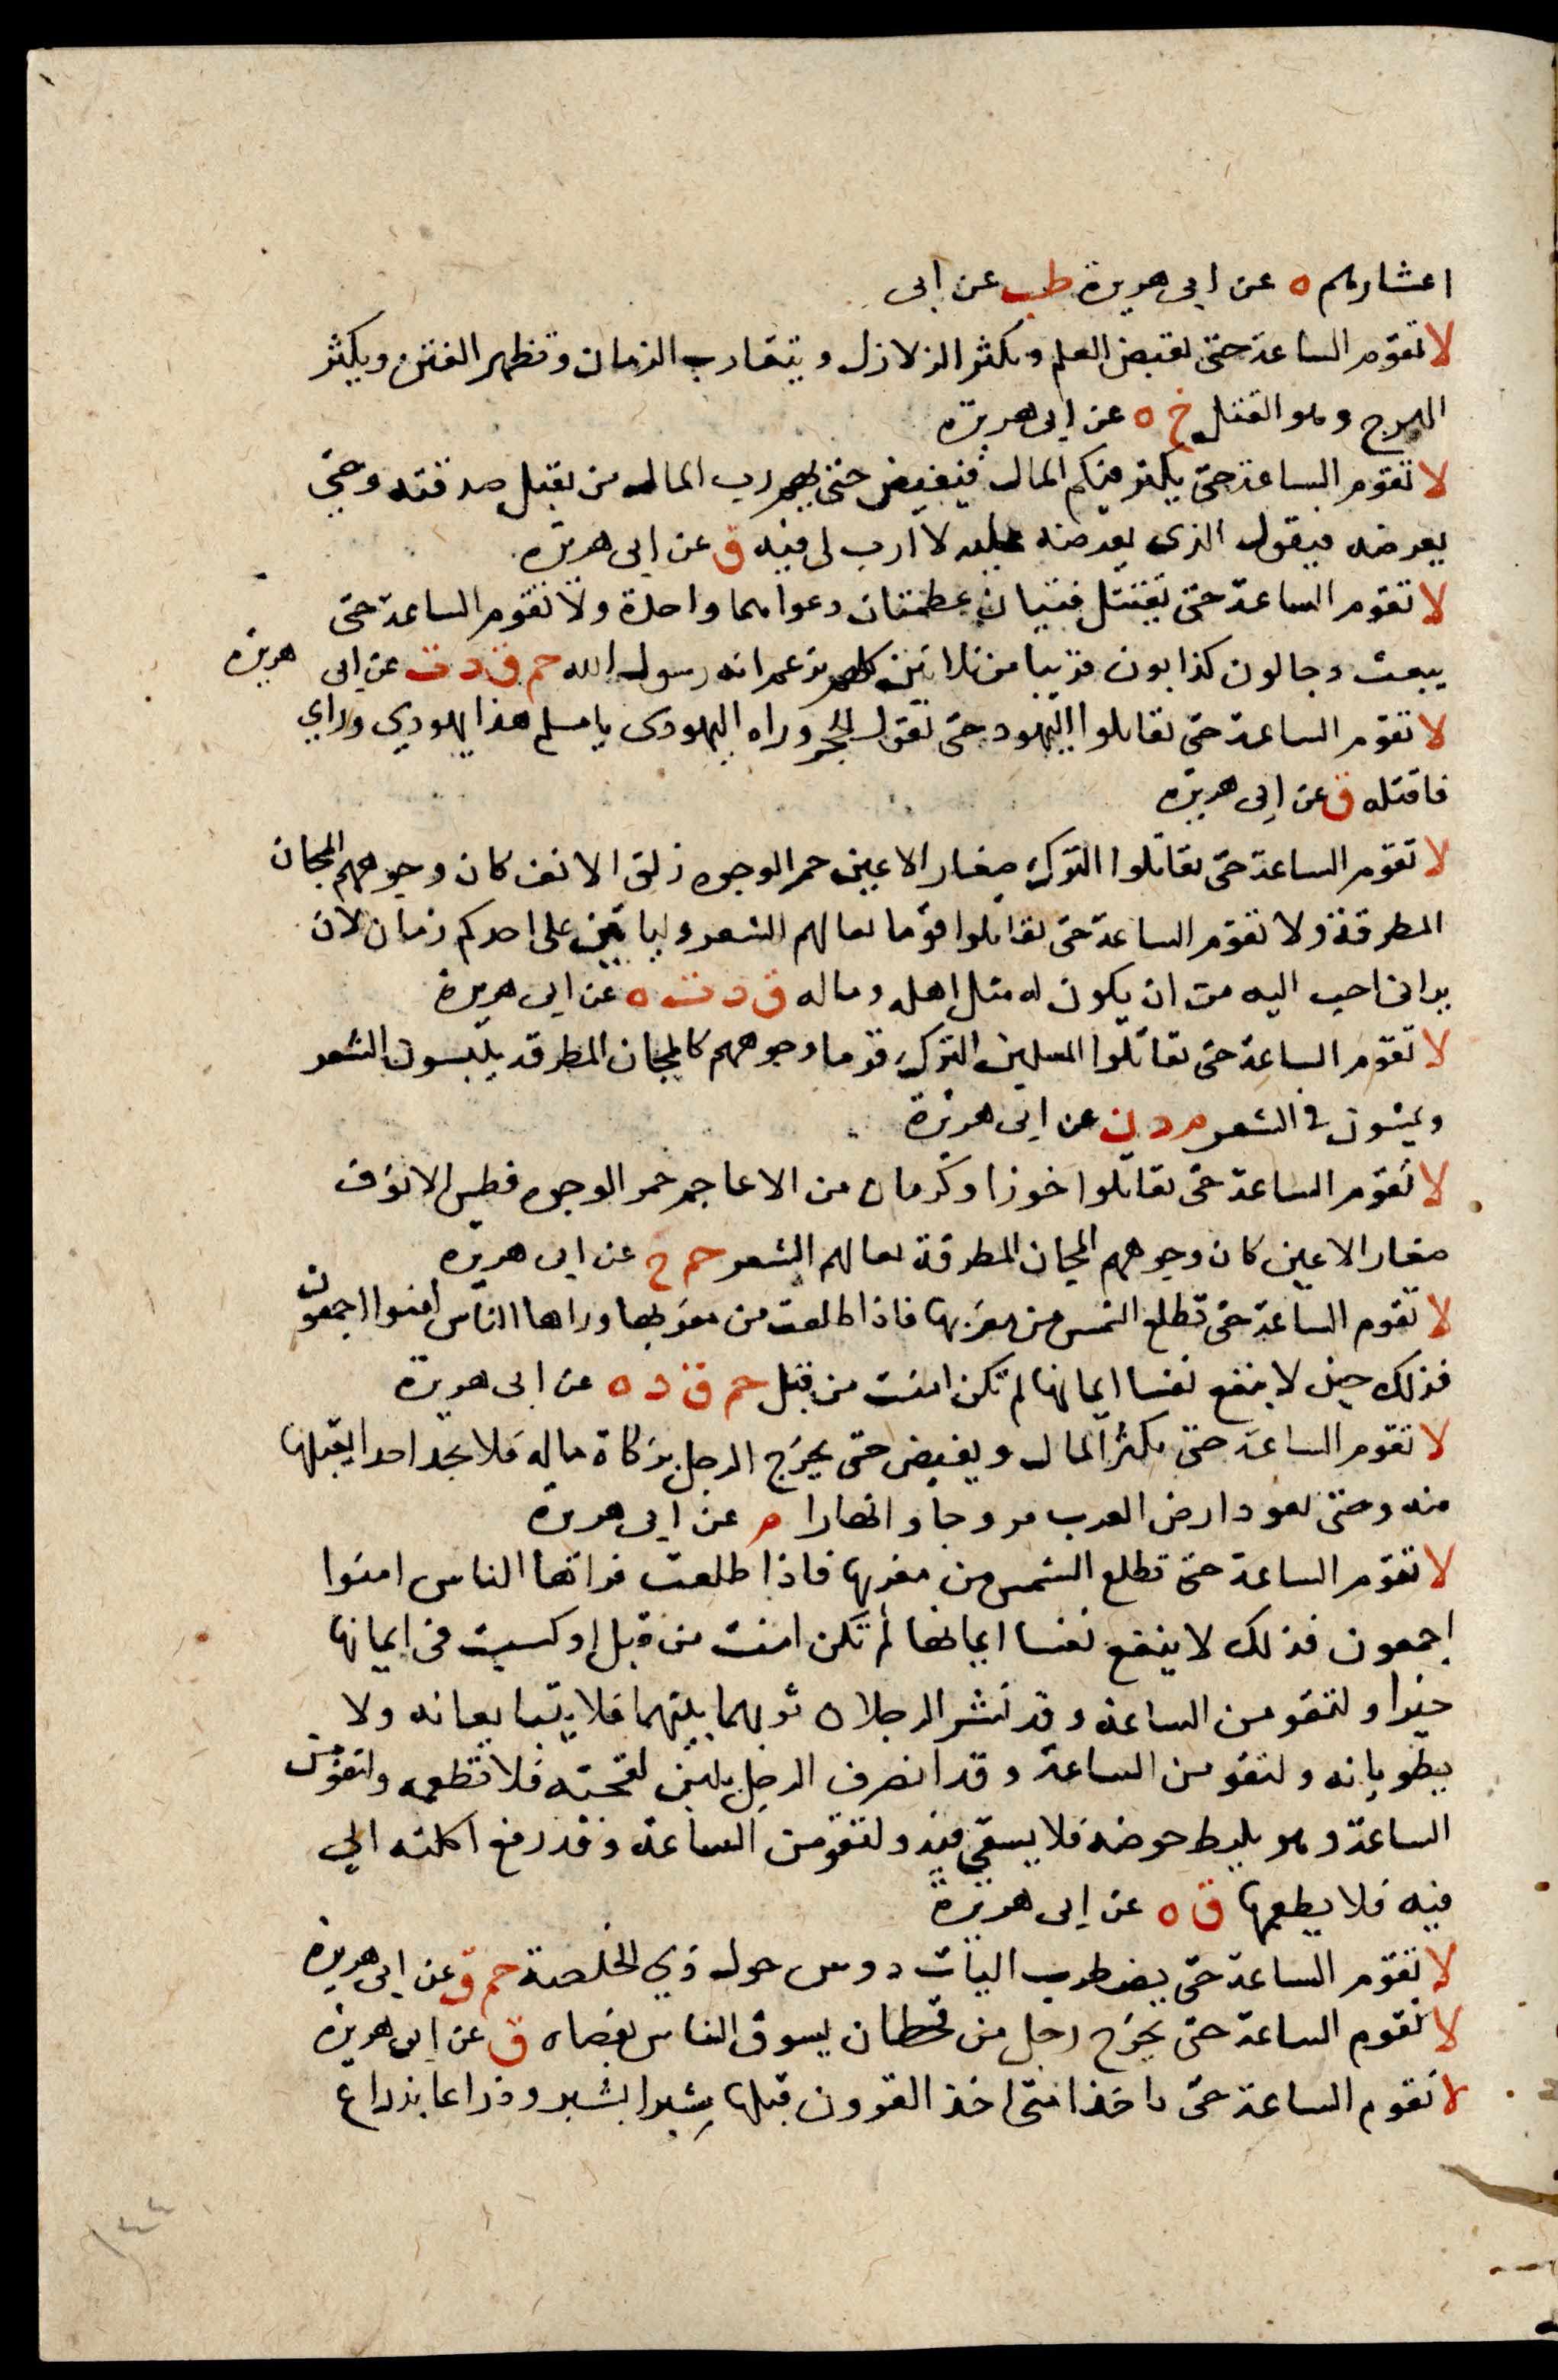 اعشارهم ه عن ابى هريرة طب عن ابى
لا تقوم الساعة حتى يقبض العلم وتكثر الزلازل ويتقارب الزمان وتظهر الفتن ويكثر
الهرج وهو القتل خ ه عن ابى هريرة
لا تقوم الساعة حتى يكثر فيكم المال فيفيض حتى يهم رب المال من يقبل صدقته وحتى
يعرضه فيقول الذى يعرضه عليه لا ارب لى فيه ق عن ابى هريرة
لا تقوم الساعة حتى يقتتل فتيان عظمتان دعواهما واحدة ولا تقوم الساعة حتى
يبعث دجالون كذابون قريبا من ثلاثين كلهم يزعم انه رسول الله حم ق د ت عن ابى هريرة
لا تقوم الساعة حتى تقاتلوا اليهود حتى يقول الحجر وراه اليهودى يا مسلم هذا يهودي وراي
فاقتله ق عن ابى هريرة
لا تقوم الساعة حتى تقاتلوا الترك صغار الاعين حمر الوجوه زلق الانف كان وجوههم المجان
المطرقة ولا تقوم الساعة حتى تقاتلوا قوما نعالهم الشعر وليأتين على احدكم زمان لان
يرانى احب اليه من ان يكون له مثل اهله وماله ق د ت ه عن ابى هريرة
لا تقوم الساعة حتى تقاتلوا المسلمين الترك قوما وجوههم كالمجان المطرقة يلبسون الشعر
ويمشون في الشعر م د ن عن ابى هريرة
لا تقوم الساعة حتى تقاتلوا خوزا وكرمان من الاعاجم حمر الوجوه فطس الانوف
صغار الاعين كان وجوههم المجان المطرقة نعالهم الشعر حم خ عن ابى هريرة
لا تقوم الساعة حتى تطلع الشمس من مغربها فاذا طلعت من مغربها وراها الناس امنوا اجمعون
فذلك حين لا ينفع نفسا ايمانها لم تكن امنت من قبل حم ق د ه عن ابى هريرة
لا تقوم الساعة حتى يكثر المال ويفيض حتى يخرج الرجل بزكاة ماله فلا يجد احدا يقبلها
منه وحتى تعود ارض العرب مروجا وانهارا م عن ابى هريرة
لا تقوم الساعة حتى تطلع الشمس من مغربها فاذا طلعت فراتها الناس امنوا
اجمعون فذلك لا ينفع نفسا ايمانها لم تكن امنت من قبل او كسبت فى ايمانها
خيرا ولتقومن الساعة وقد نشر الرجلان ثوبهما بينهما فلا يتبايعانه ولا
يطويانه ولتقومن الساعة وقد انصرف الرجل بلبن لقحته فلا تطعمه ولتقومن
الساعة وهو يليط حوضه فلا يسقى فيه ولتقومن الساعة وقد رفع اكلته الى
فيه فلا يطعمها ق ه عن ابى هريرة
لا تقوم الساعة حتى يضطرب اليات دوس حول ذي الخلصة حم ق عن ابى هريرة
لا تقوم الساعة حتى يخرج رجل من قحطان يسوق الناس بعصاه ق عن ابى هريرة
لا تقوم الساعة حتى تاخذ امتى اخذ القرون قبلها شبرا بشبر وذراعا بذراع